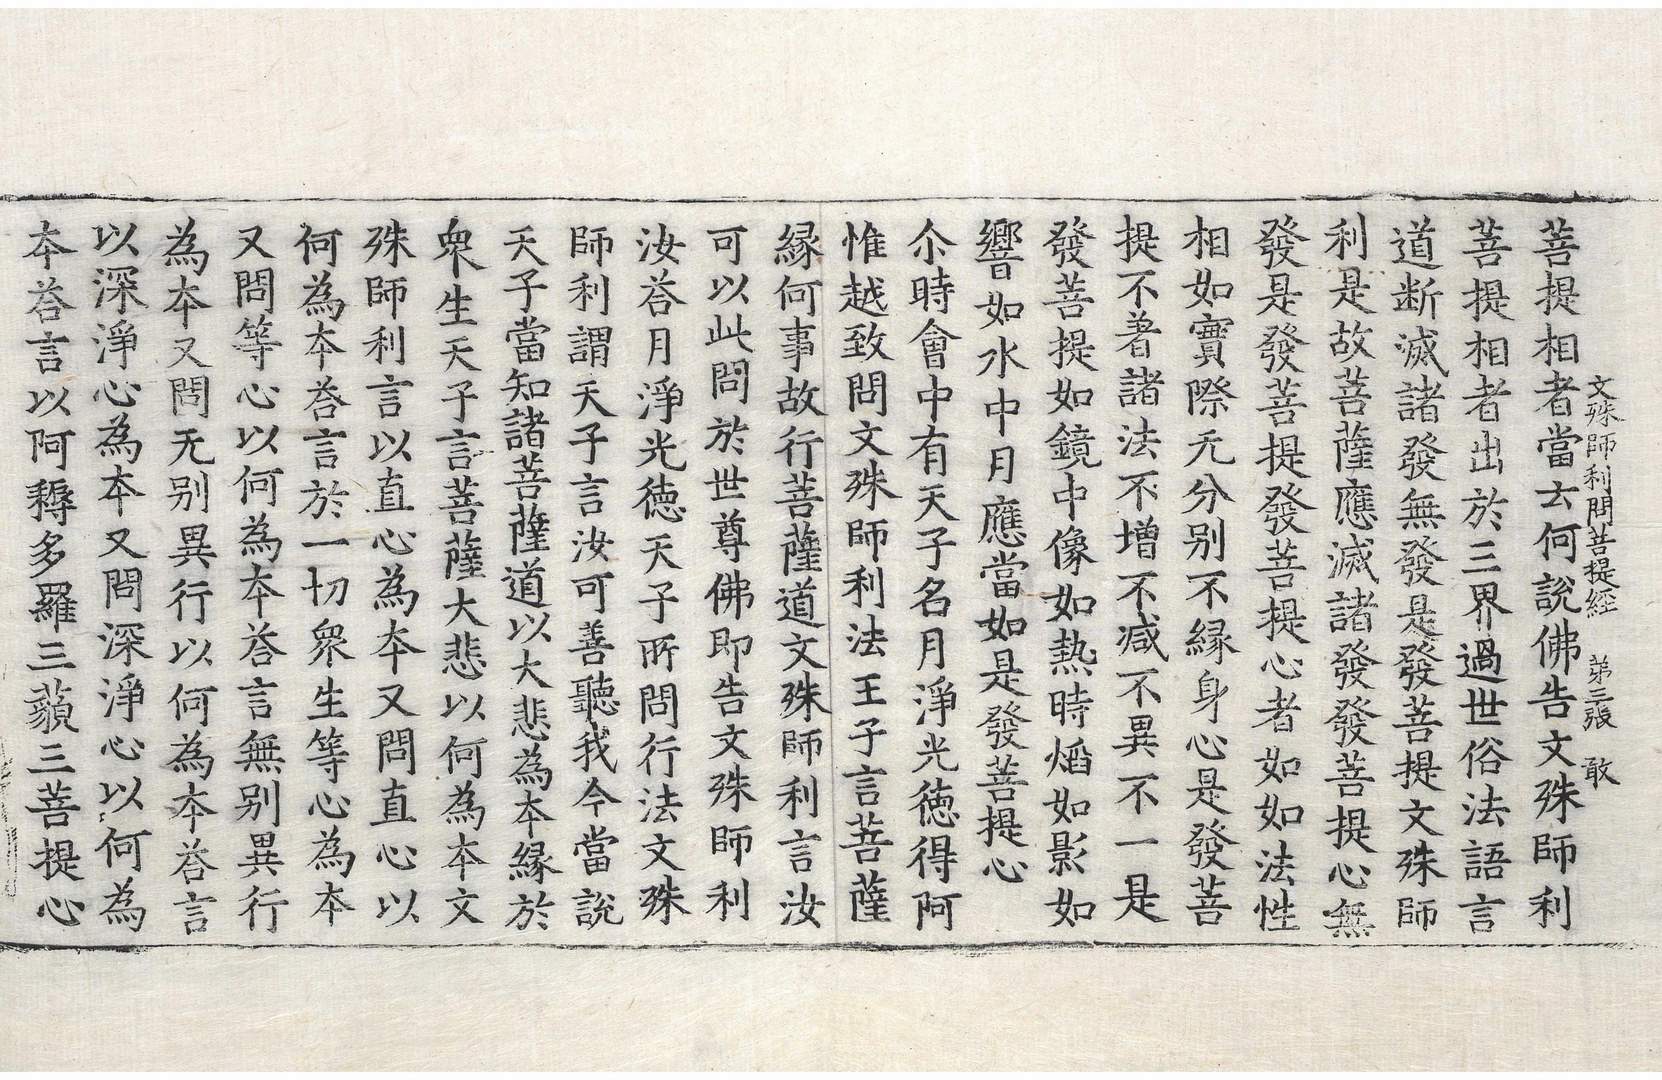 文殊師利問菩提經　第三張　敢
菩提相者當去何說佛告文殊師利
菩提相者出於三界過世俗法語言
道断滅諸發無發是發菩提文殊師
利是故菩薩應滅諸發發菩提心無
發是發菩提發菩提心者如如法性
相如實際无分别不縁身心是發菩
提不著諸法不增不減不異不一是
發菩提如鏡中像如熱時熖如影如
響如水中月應當如是發菩提心
尒時會中有天子名月淨光德得阿
惟越致問文殊師利法王子言菩薩
縁何事故行菩薩道文殊師利言汝
可以此問於世尊佛即告文殊師利
汝荅月淨光德天子所問行法文殊
師利謂天子言汝可善聽我今當說
天子當知諸菩薩道以大悲為本縁於
衆生天子言菩薩大悲以何為本文
殊師利言以直心為本又問直心以
何為本荅言於一切衆生等心為本
又問等心以何為本荅言無别異行
為本又問无别異行以何為本荅言
以深淨心為本又問深淨心以何為
本荅言以阿耨多羅三藐三菩提心